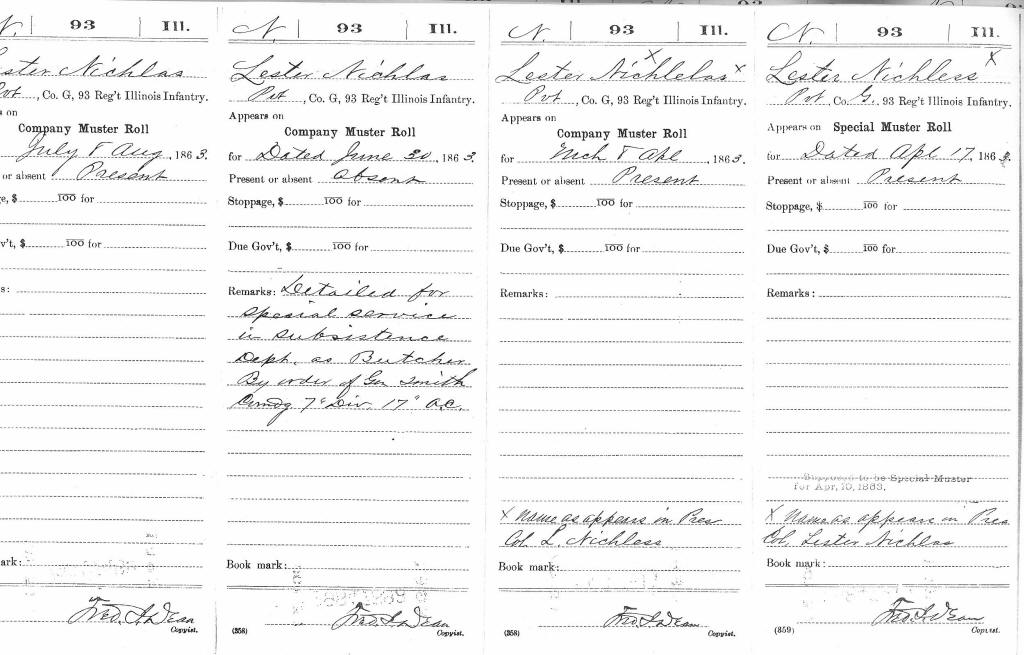 N. | 93 | Ill.
Lester Nichlas
Pvt, Co. G, 93 Reg't Illinois Infantry.
s on
Company Muster Roll
July & Aug, 1863.
or absent Present
e, $ 100 for
v't, $ 100 for
s:
ark:
Fred. A. Dean
Copyist.
N. | 93 | Ill.
Lester Nichlas
Pvt, Co. G, 93 Reg't Illinois Infantry.
Appears on
Company Muster Roll
for Dated June 30, 1863.
Present or absent absent
Stoppage, $ 100 for
Due Gov't, $ 100 for
Remarks: Detailed for
special service
in subsistence
Dept. as Butcher
By order of Gen Smith
Comdg 7" Div. 17" A.C.
Book mark:
Fred. A. Dean
(358) Copyist.
N. | 93 | Ill.
Lester Nichlelas x
Pvt, Co. G, 93 Reg't Illinois Infantry.
Appears on
Company Muster Roll
for Mch & Apl, 1863.
Present or absent Present
Stoppage, $ 100 for
Due Gov't, $ 100 for
Remarks:
X Name as appears in Pres
Col. L. Nichless
Book mark:
Fred. A. Dean
(358) Copyist.
N. | 93 | Ill.
Lester Nichless x
Pvt Co G., 93 Reg't Illinois Infantry.
Appears on Special Muster Roll
for Dated Apl 17, 1863.
Present or absent Present
Stoppage, $ 100 for
Due Gov't, $ 100 for
Remarks:
Supposed to be Special Muster
for Apr. 10, 1863.
X Name as appears in Pres
Col. Lester Nichlas
Book mark:
Fred. A. Dean
(359) Copyist.